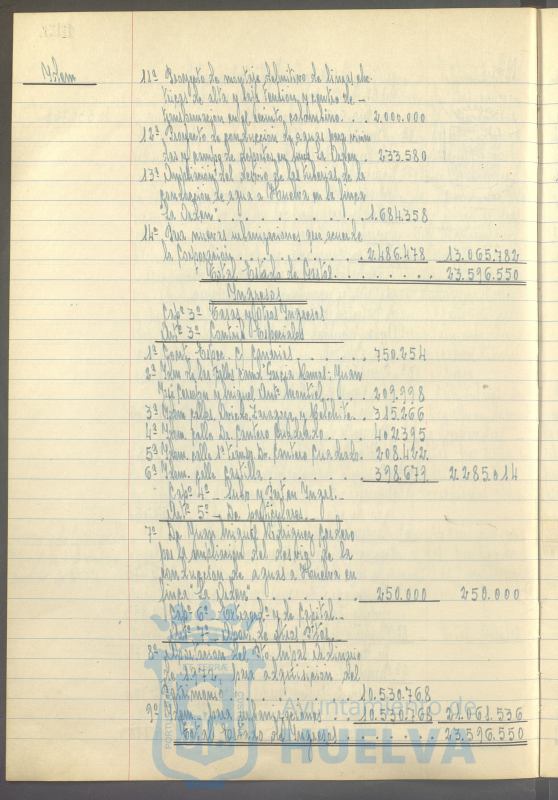 Idem
11º Proyecto de montaje definitivo de líneas eléc-
tricas de alta y baja tensión y centro de -
transformación en el recinto colombino. . . 2.000.000
12º Proyecto de conducción de aguas para vivien
das y campo de deportes en finca La Orden . 233.580
13º Ampliación del desvío de las tuberías de la
conducción de agua a Huelva en la finca
"La Orden" . . . . . . . . . 1.684.358
14º Para nuevas urbanizaciones que acuerde
la Corporación . . . . . . 2.486.478 13.065.782
Total Estado de Gastos . . . . . . . 23.596.550
Ingresos
Capº 3º Tasas y Otros Ingresos
Artº 3º Contrib. Especiales
1º Cont. Espec. C/ Canarias . . . . . 750.254
2º Idem de las calles García Ramos, Juan
José Cerejon y Miguel Antº Montiel . . 209.998
3º Idem calles Oviedo, Zaragoza y Belchite . 315.266
4º Idem calle Dr. Cantero Cuadrado . . 402.395
5º Idem calle 1º tramo Dr. Cantero Cuadrado . 208.422
6º Idem. calle Castilla . . . . . 398.679 2.285.014
Capº 4º - Subv. y Part. en Ingres. -
Artº 5º - De particulares. -
7º De Juan Miguel Rodríguez Cordero
por la ampliación del desvío de la
conducción de aguas a Huelva en
finca "La Orden" . . . . . . 250.000 250.000
Capº 6º Extraordº y de Capital. -
Artº 7º
8º del Pto. Mpal. Ordinario
de 1972, para adquisición del
Patrimonio . . . . . . 10.530.768
9º Idem, para urbanizaciones . . 10.530.768 21.061.536
Total Estado de Ingresos . . . . . . 23.596.550
Ayuntamiento de
HUELVA